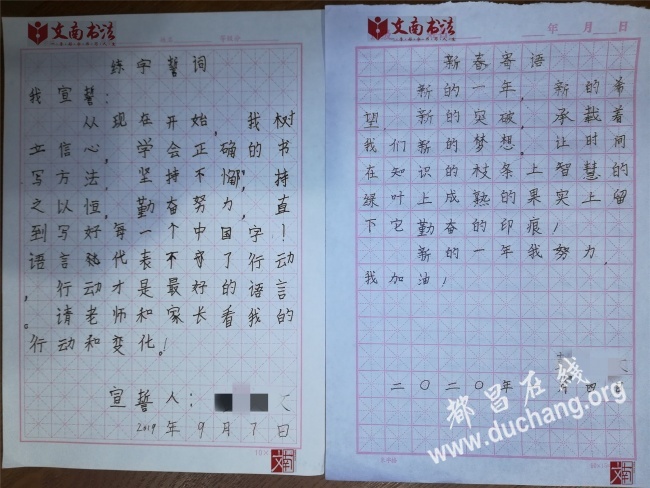 文南书法
练字誓词
我宣誓:
从现在开始, 我树
立信心, 学会正确的书
写方法, 坚持不懈, 持
之以恒, 勤奋努力, 直
到写好每一个中国字!
语言代表不了行动
, 行动才是最好的语言
。请老师和家长看我的
行动和变化!
宣誓人:
2019年9月7日
文南书法
年 月 日
新春寄语
新的一年, 新的希
望, 新的突破, 承载着
我们新的梦想。让时间
在知识的枝条上智慧的
绿叶上成熟的果实上留
下它勤奋的印痕!
新的一年我努力,
我加油!
二〇二〇年
都昌在线
www.duchang.org